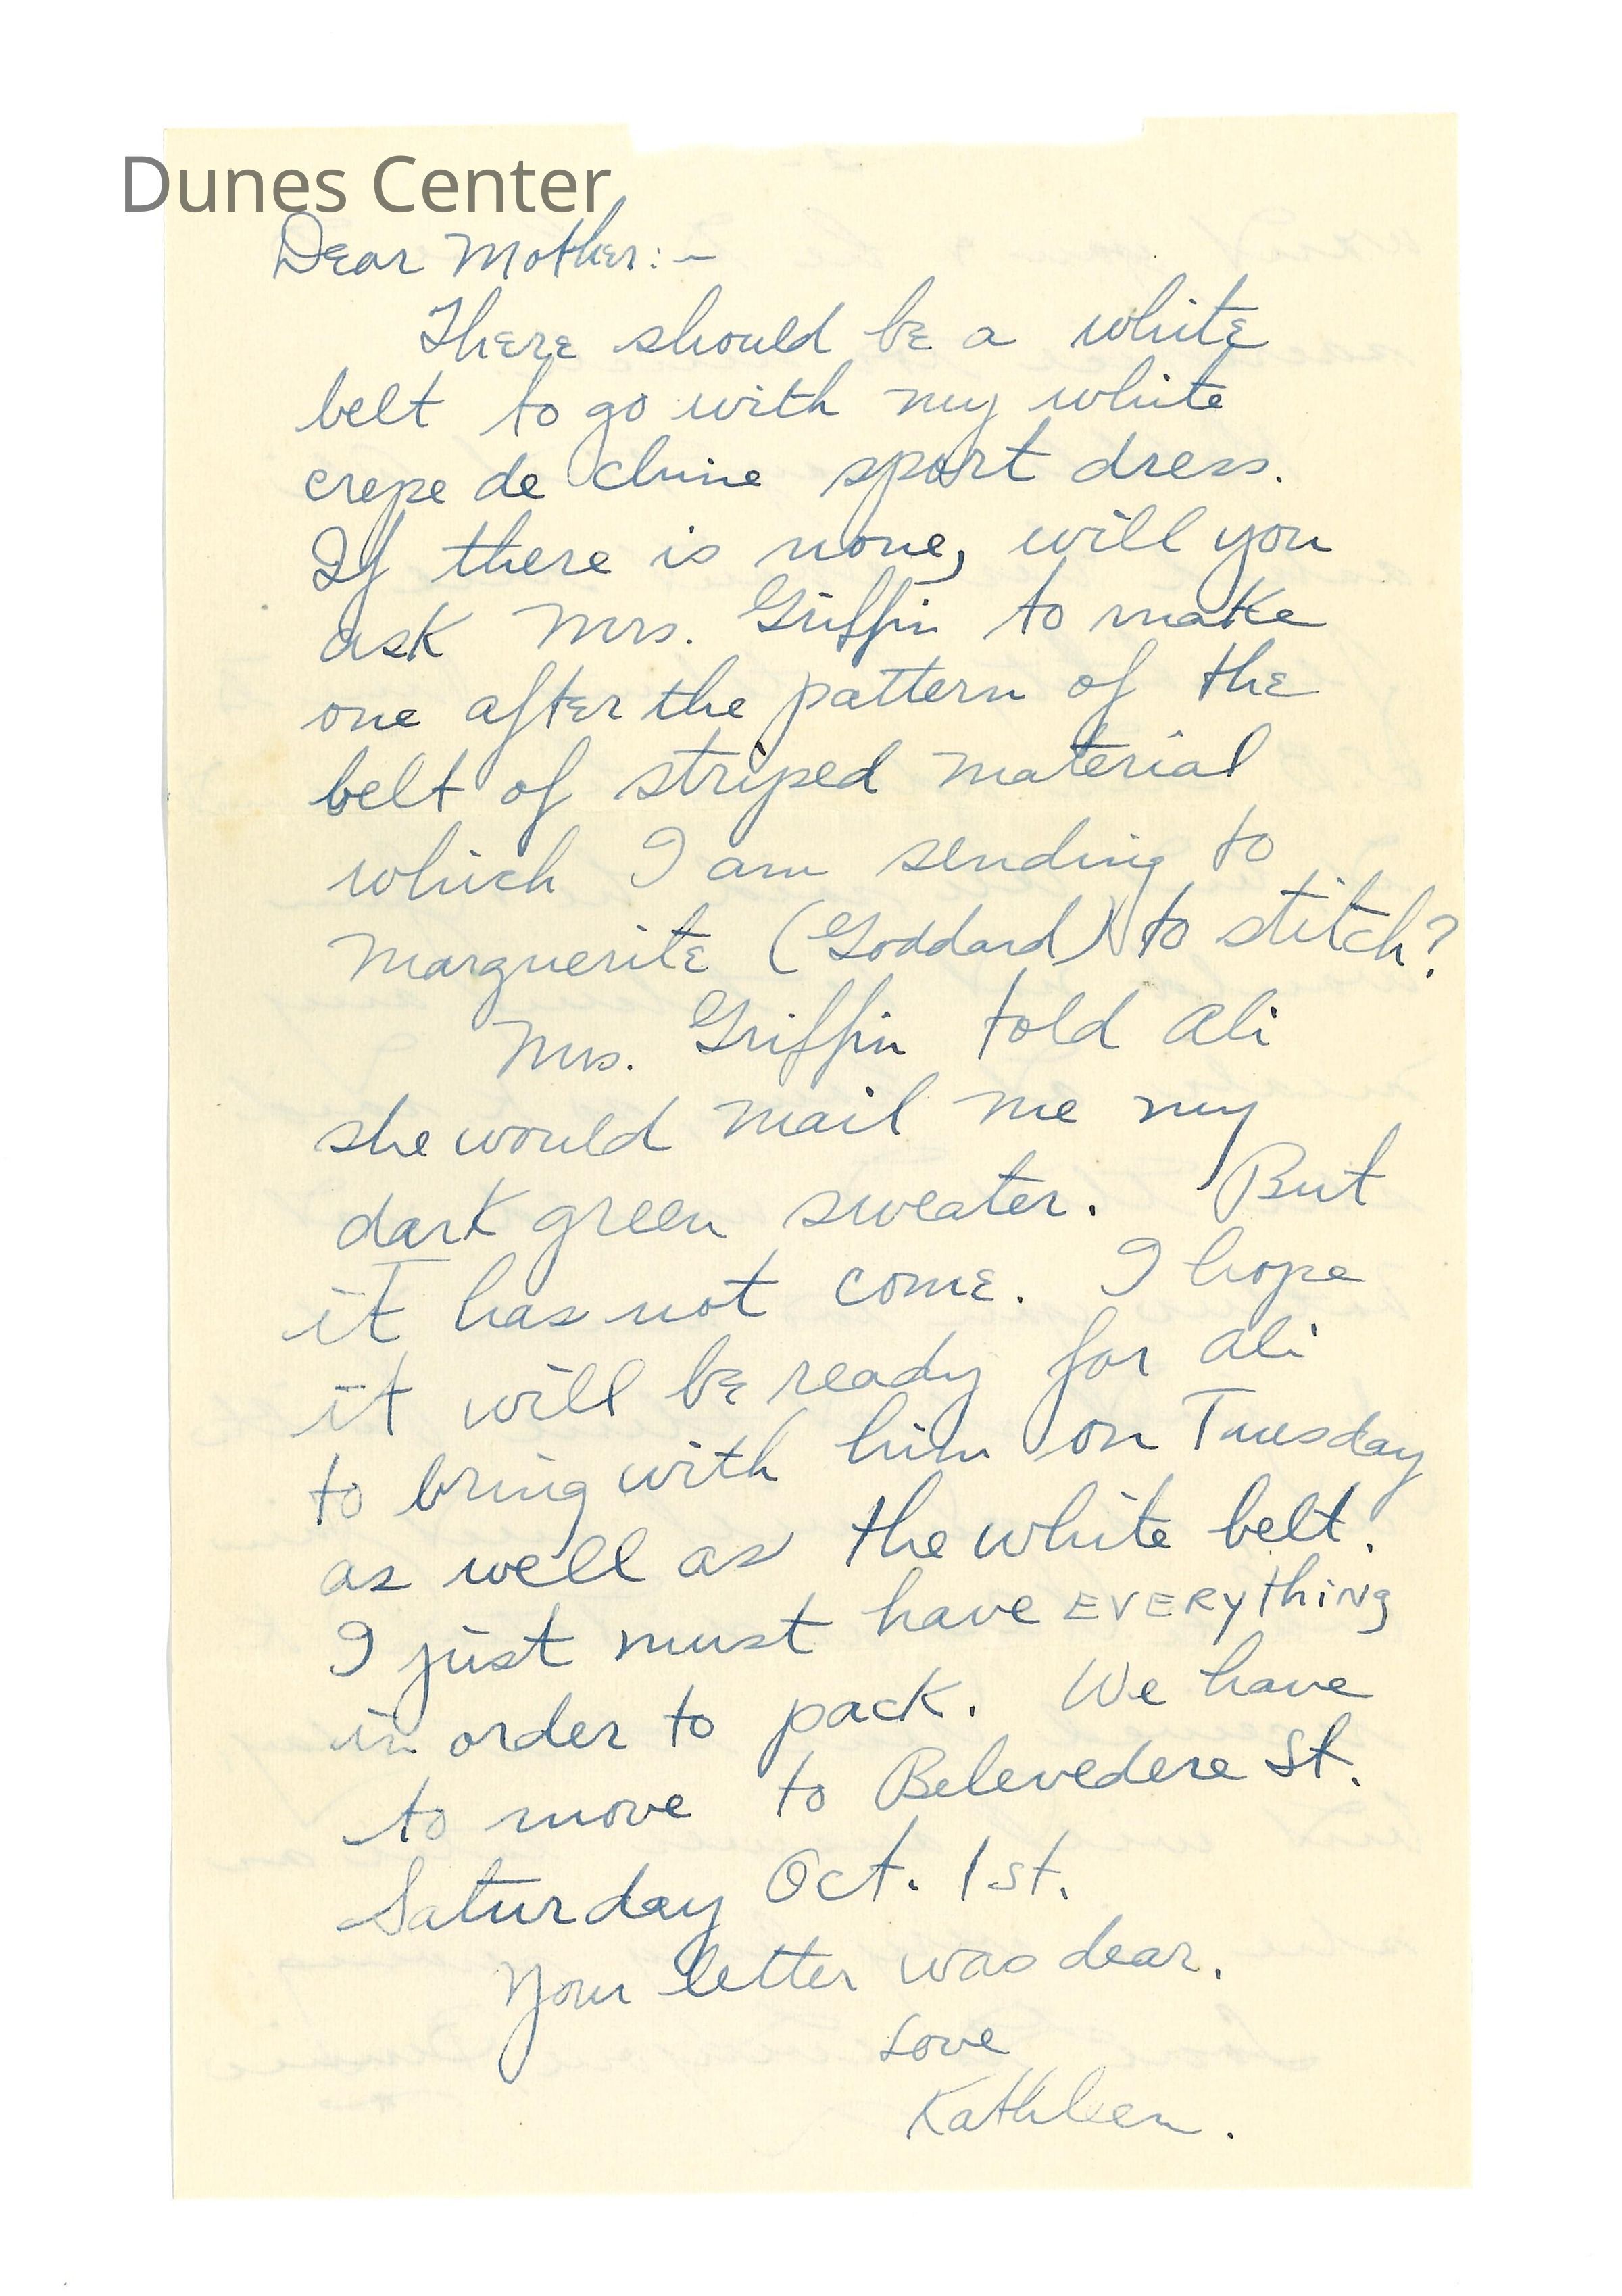 Dunes Center
Dear Mother:-
There should be a white
belt to go with my white
crepe de chine sport dress.
If there is none, will you
ask Mrs. Griffin to make
one after the pattern of the
belt of striped material
which I am sending to
Marguerite (Goddard) to stitch?
Mrs. Griffin told Ali
she would mail me my
dark green sweater. But
it has not come. I hope
it will be ready for Ali
to bring with him on Tuesday
as well as the white belt.
I just must have EVERYthiNg
in order to pack. We have
to move to Belevedere St.
Saturday Oct. 1st.
Your letter was dear.
Love
Kathleen.